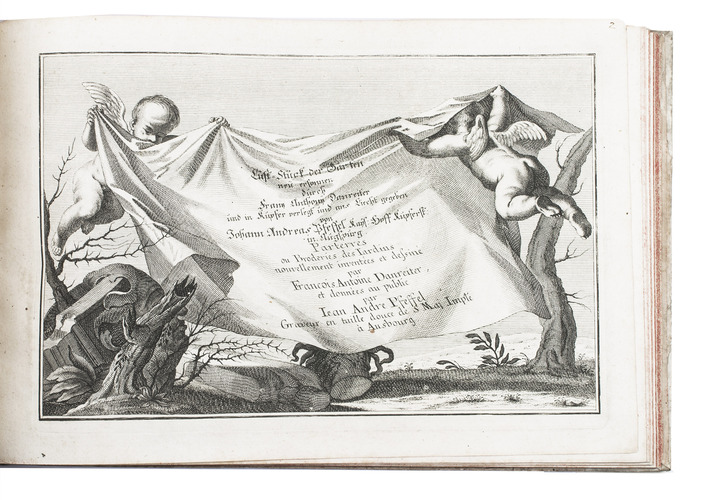 2
Lust-Stück der Gärten
neu ersonnen
durch
Frantz Anthoni Danreiter
und in Kupfer verlegt und ans Liecht gegeben
von
Johann Andreas Pfeffel Kays. Hoff Kupferst.
in Augspurg
Parterres
ou Broderies des Jardins
nouvellement inventées et dessiné
par
François Antoine Danreiter,
et données au public
par
Iean André Pfeffel
Graveur en taille douce de S. Maj. Imple
à Ausbourg.